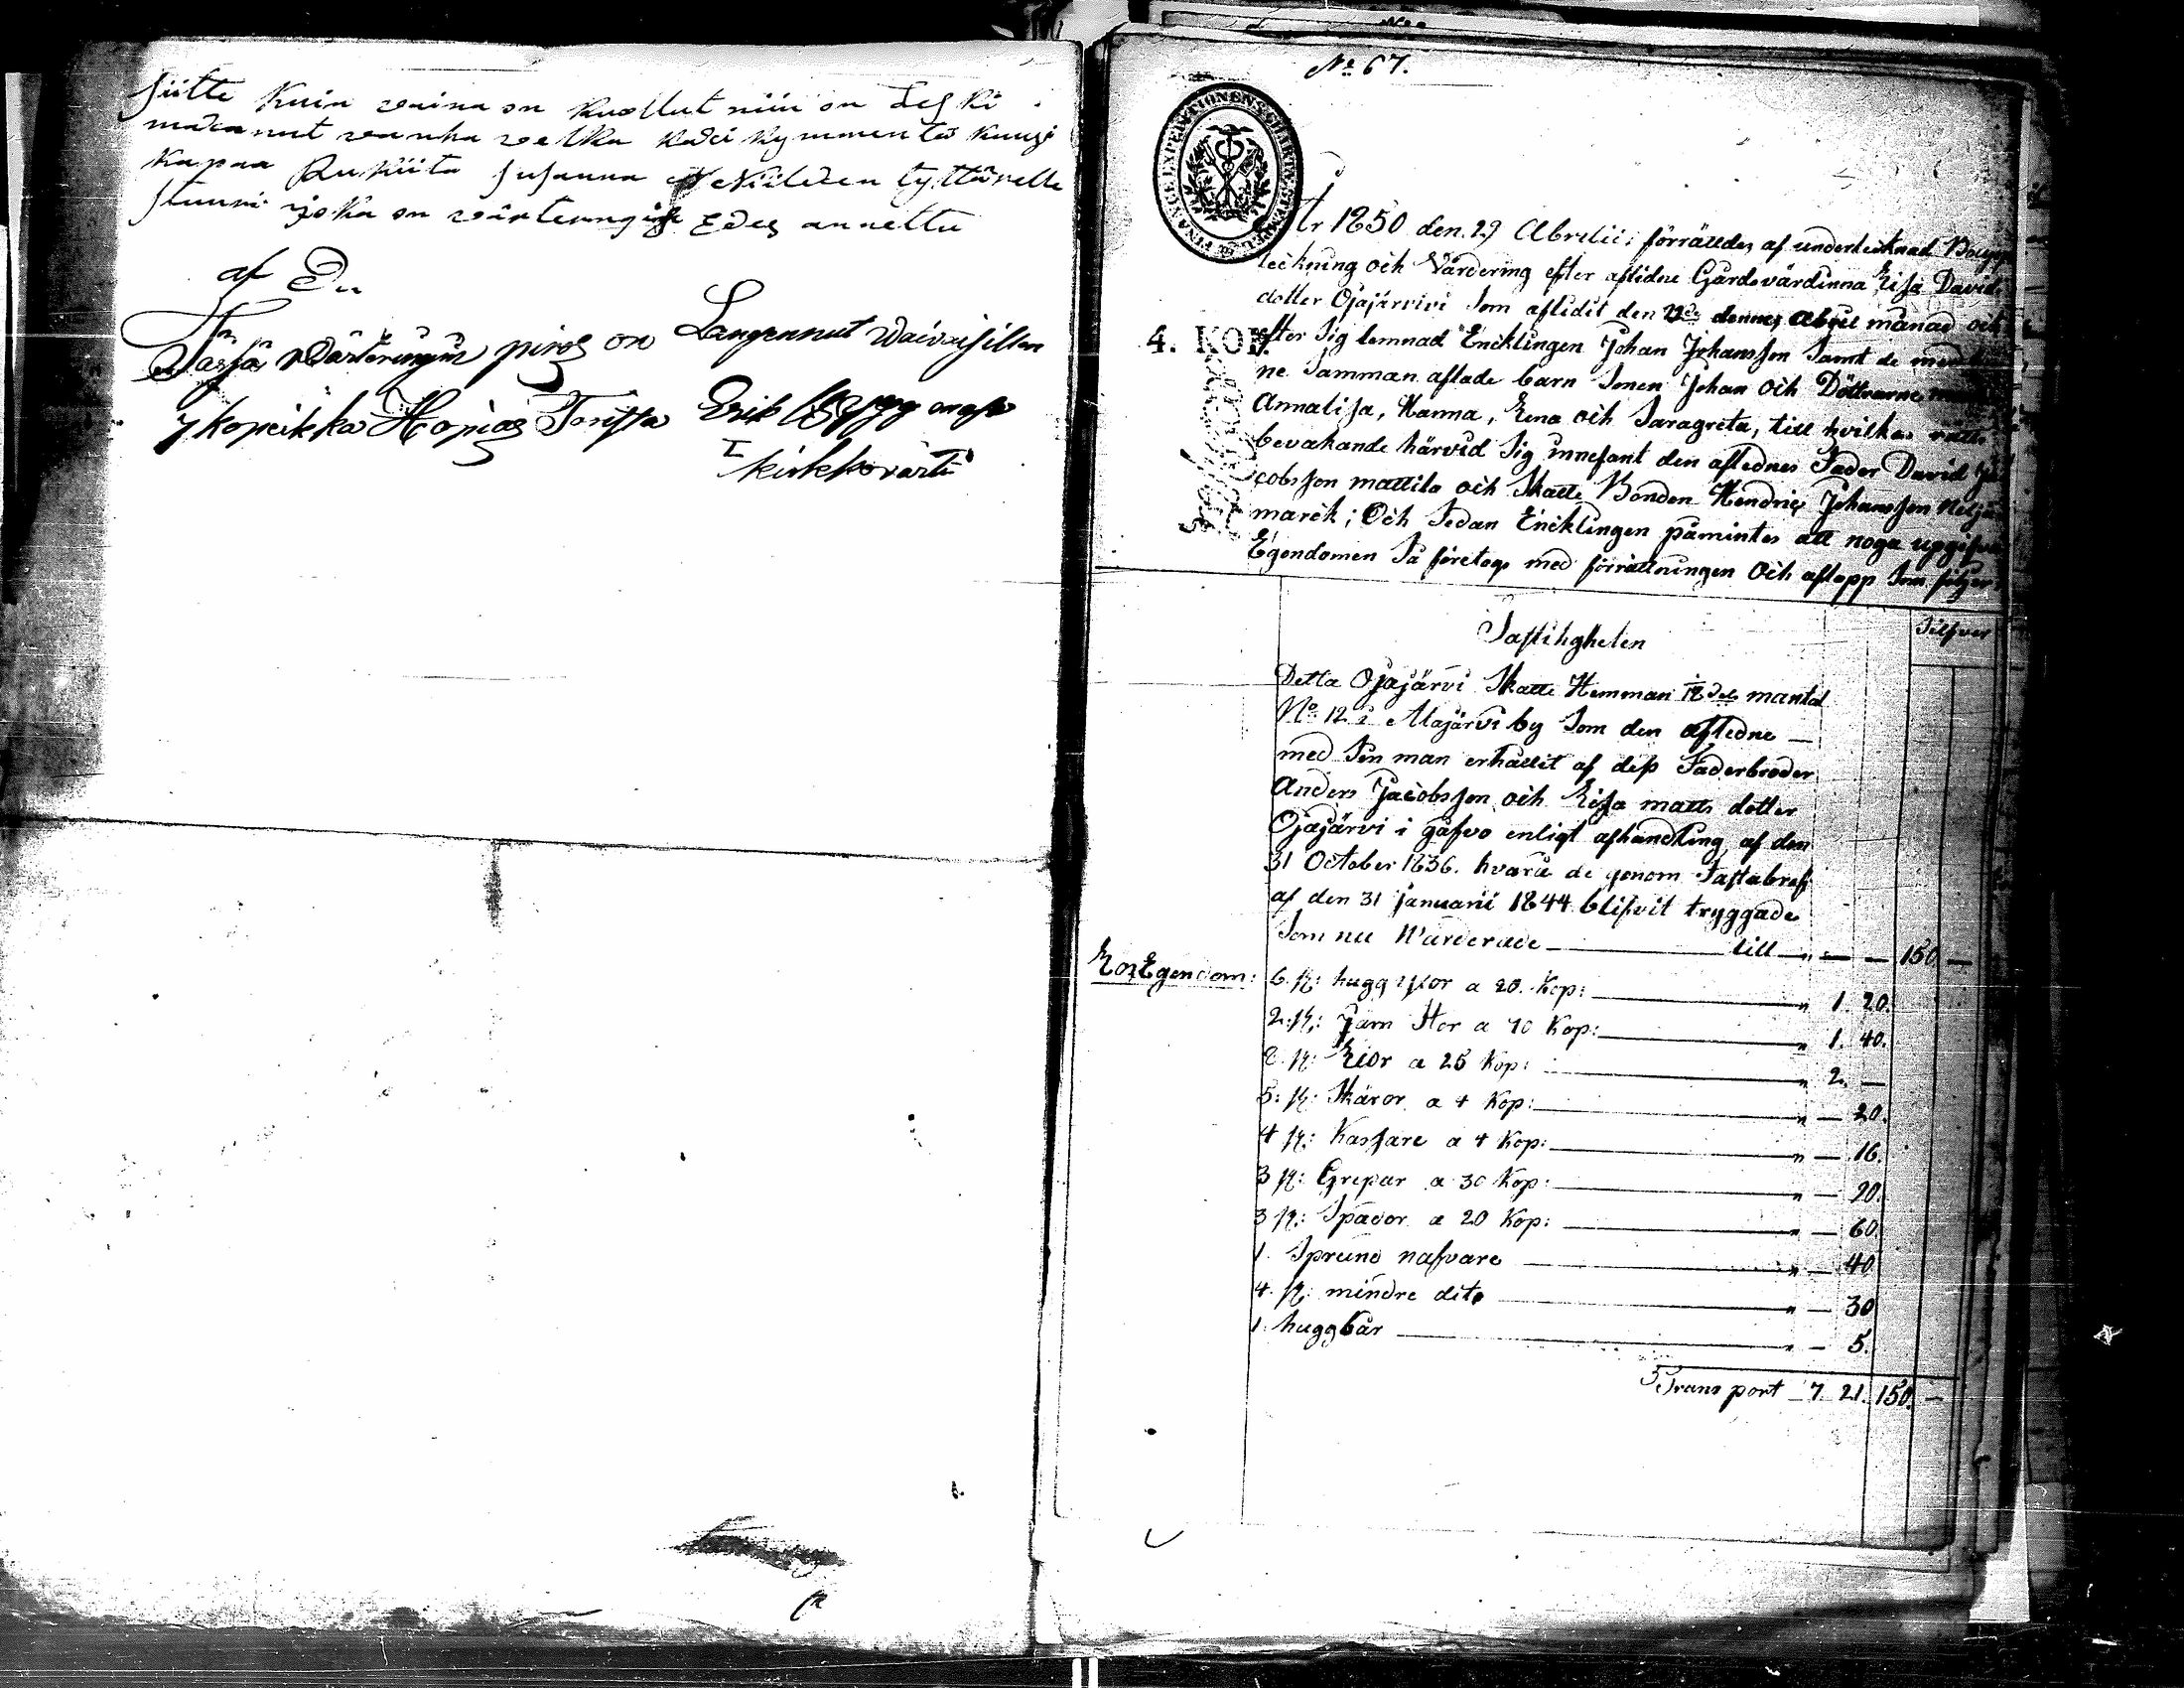 siitte Kuin vaina on Kuollut niin on Leski
maxanut vanha velka Kaxi Kymmentä Kuusi
Kapaa Rukiita Susanna Niilexen tyttärelle
joka on värteringist Edes annettu
af Du
Tassä Wärteringin pires on Langennut Waivaisillen
7 kopeikka Hopias Erik
kirkkovärti
No 67.
FINANCE EXPEDITIONENS CHARTÆ STEMPEL
År 1850 den 29 Abrelii förrättdes af undertecknad Bouppteckning
teckning och Värdering efter aflidne Gårdsvärdinna Lisa Davids
dotter Ojajärvi Som aflidit den dennes Abrill månad och
4. KOP.
efter Sig lemnad Encklingen Johan Johansson Samt de med
ne Samman aflade barn Sonen Johan och Döttrarne
Annalisa, Hanna, Lena och Saragreta, till hvilkas rätts
bevakande härvid Sig innefant den aflednes Fader David Ja
cobsson mattila och Skatte Bonden Hendric Johansson
marck; Och Sedan Encklingen påmintes att noga uppgifva
Egendomen Så företogs med förrättningen Och aflopp Som följer
Silfver
Fastihgheten
Detta Ojajärvi Skatte Hemman 12 del mantal
No 12 i Alajärvi by Som den afledne
med Sin man erhållit af dess Faderbroder
Anders Jacobsson och Lisa matts dotter
Ojajärvi i gåfvo enligt afhandling af den
31 October 1836. hvarå de genom Fastabref
af den 31 Januarii 1844 blifvit tryggade
Som nu Värderade — till " — — 150 —
Lös Egendom: 6. st: hugg yxor a 20. Kop: — " 1. 20.
2. st: Järn Stör a 70 Kop: — " 1. 40.
8. st: Liör a 25 Kop: — " 2. —
5. st: Skäror a 4 Kop: — " — 20.
4 st: Kassare a 4 Kop: — " — 16.
3 st: Grepar a 30 Kop: — " — 90.
3 st: Spador a 20 Kop: — " — 60.
1. Sprund nafvare — " — 40
4. st: mindre dito — " — 30
1. huggbår — " — 5.
Transport — 7. 21. 150. —